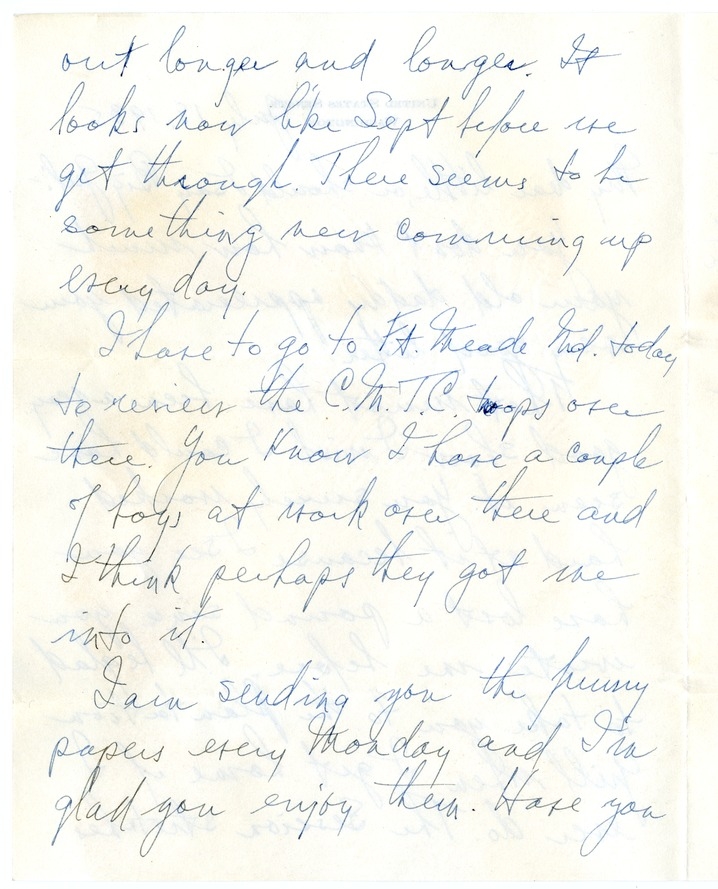 out longer and longer. It
looks now like Sept before we
get through. There seems to be
something new comming up
every day.
I have to go to Ft. Meade Md. today
to review the C.M.T.C. troops over
there. You know I have a couple
of boys at work over there and
I think perhaps they got me
into it.
I am sending you the funny
papers every Monday and I'm
glad you enjoy them. Have you